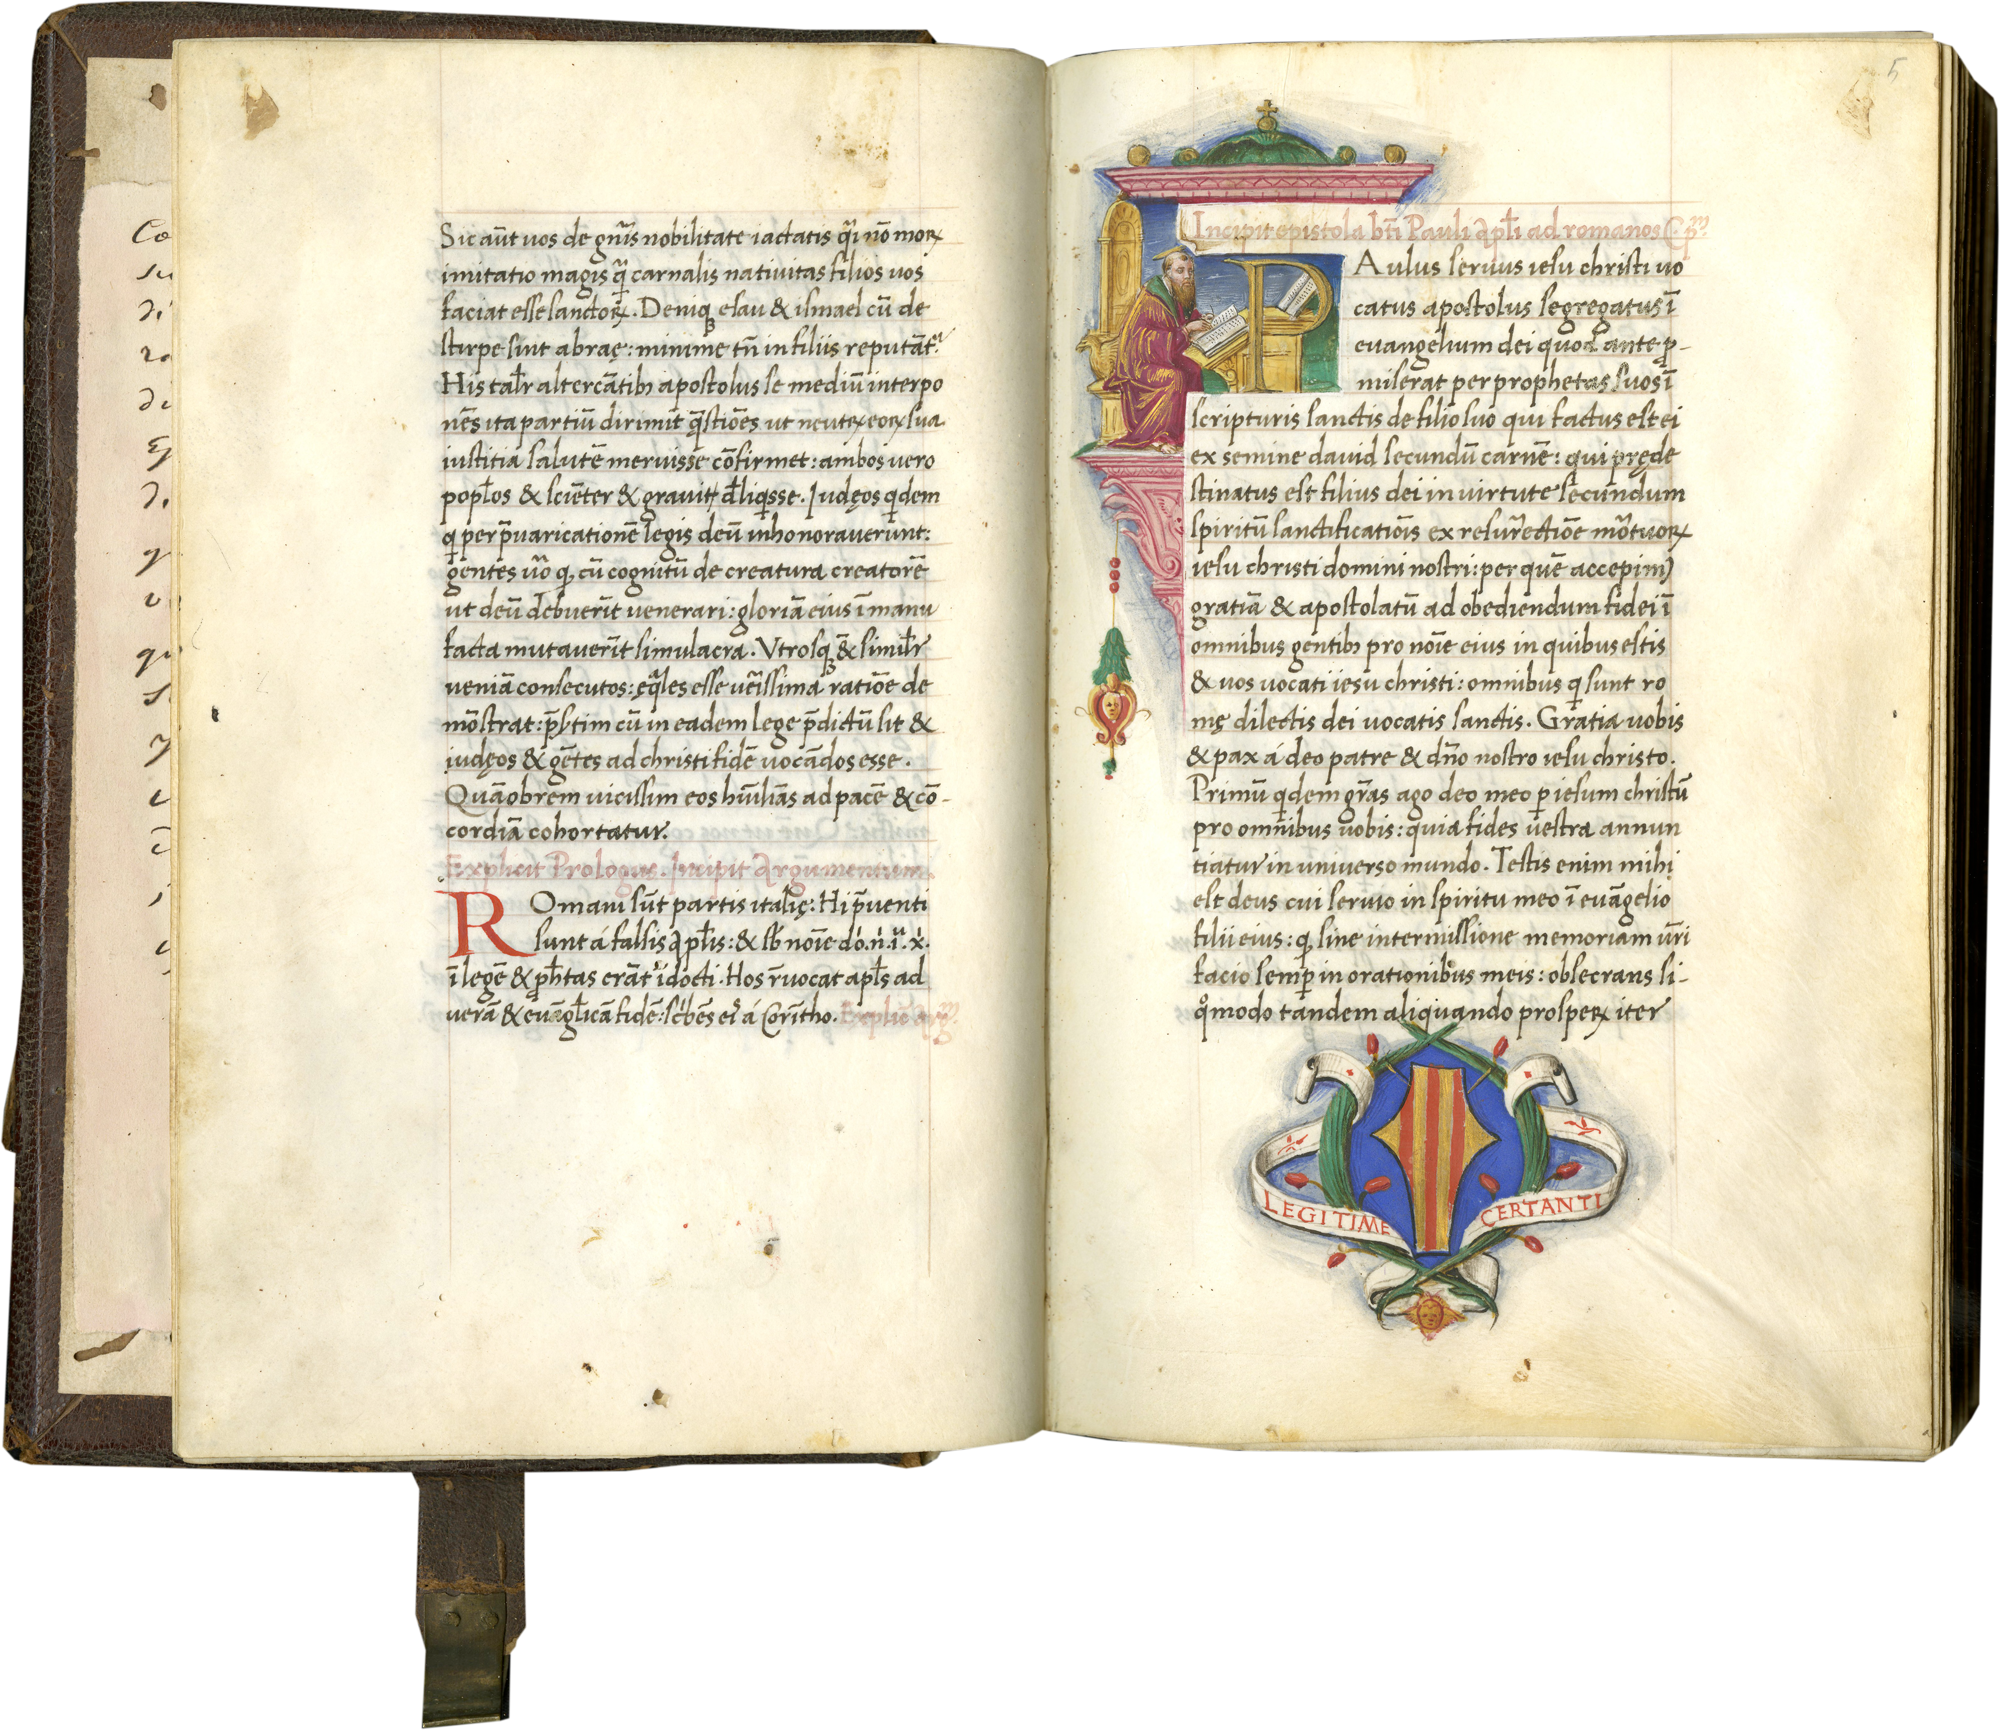 Co
su
di
de
q
qu
Sic aūt uos de gn̄is nobilitate iactatis q̄i nō moꝝ
imitatio magis q̄ carnalis nativitas filios vos
faciat esse sanctoꝝ. Deniqꝫ esau & ismael cū de
stirpe sint abraę: minime tn̄ in filiis reputāt.
His tal̄r altercātibꝫ apostolus se mediū interpo
nēs ita partiū dirimit q̄stiōes ut neutꝝ eoꝝ sua
iustitia salutē meruisse cōfirmet: ambos uero
popl̄os & sciēter & gravit̄ d̄liq̄sse. Judęos qdem
q per p̄varicationē legis deū inhonoraverunt:
gentes ūo q cū cognitū de creatura creatorē
ut deū debuerīt venerari: gloriā eius ī manu
facta mutaverīt simulacra. Vtrosqꝫ ēt simil̄r
veniā consecutos: ęq̄les esse uēissima ratiōe de
mōstrat: p̄stim cū in eadem lege p̄dictū sit &
iudęos & gētes ad christi fidē uocādos esse.
Quāobrem vicissim eos hūiliās ad pacē & cō-
cordiā cohortatur.
Explicit Prologus. Incipit Argumentum.
ROmani sūt partis italię: Hi p̄venti
sunt á falsis apl̄is: & sb̄ noīe dó.ṅ.i.ẋ.
ī legē & ꝓhetas erāt idocti. Hos r̄vocat apl̄s ad
verā & euāgl̄icā fidē: sc̄bēs eis á Corītho. Explic̄ arg̅.
5
Incipit epistola bt̄i Pauli apl̄i ad romanos C. p.ᵐ
P Aulus servus iesu christi vo
catus apostolus segregatus ī
evangelium dei quod ante ꝓ-
miserat per prophetas suos ī
scripturis sanctis de filio suo qui factus est ei
ex semine david secundū carnē: qui pręde
stinatus est filius dei in virtute secundum
spiritū sanctificatiōis ex resur̄ectiōe mōtuoꝝ
iesu christi domini nostri: per quē accepimꝰ
gratiā & apostolatū ad obediendum fidei ī
omnibus gentibꝫ pro noīe eius in quibus estis
& uos uocati iesu christi: omnibus q sunt ro
mę dilectis dei uocatis sanctis. Gratia uobis
& pax á deo patre & dn̄o nostro iesu christo.
Primū qdem gr̄as ago deo meo ꝑ iesum christū
pro omnibus uobis: quia fides vestra annun
tiatur in universo mundo. Testis enim mihi
est deus cui servio in spiritu meo ī evāgelio
filii eius: q sine intermissione memoriam ūri
facio semꝑ in orationibus meis: obsecrans si-
q̊modo tandem aliquando prosperꝝ iter
LEGITIME CERTANTI